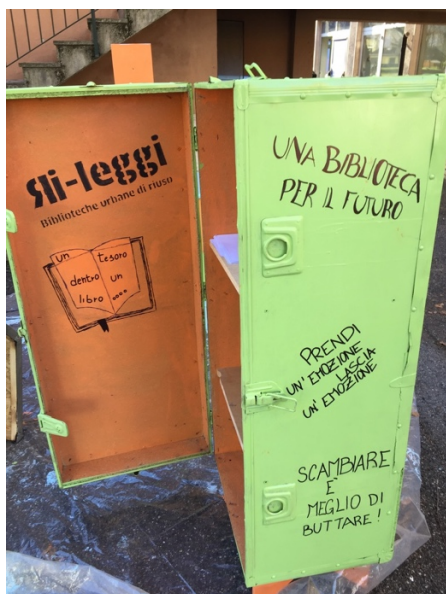 Яi-leggi
Biblioteche urbane di riuso
un tesoro
dentro un
libro ....
UNA BIBLIOTECA
PER IL FUTURO
PRENDI
UN'EMOZIONE
LASCIA
UN'EMOZIONE
SCAMBIARE
È
MEGLIO DI
BUTTARE!